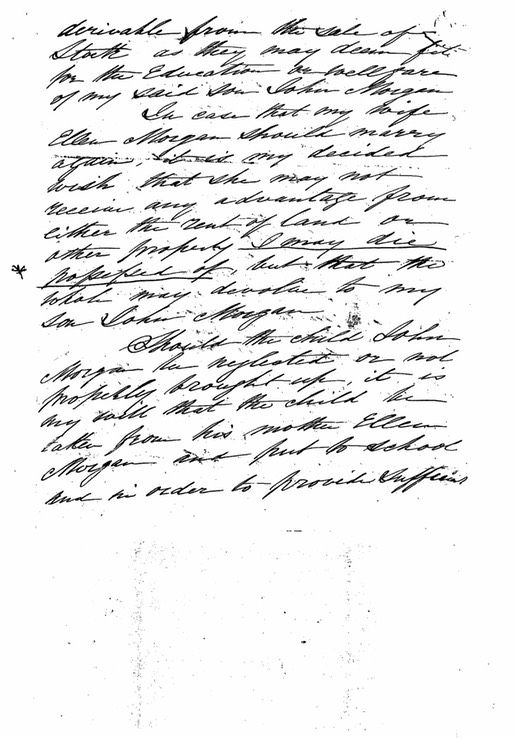 derivable from the sale of
Stock as they may deem fit
for the Education or wellfare
of my said son John Morgan
In case that my wife
Ellen Morgan should marry
again it is my decided
wish that she may not
receive any advantage from
either the rent of land or
other property I may die
possessed of, but that the
whole may devolve to my
son John Morgan
Should the child John
Morgan be neglected or not
properly brought up, it is
my will that the child be
taken from his mother Ellen
Morgan and put to school
and in order to provide suffici